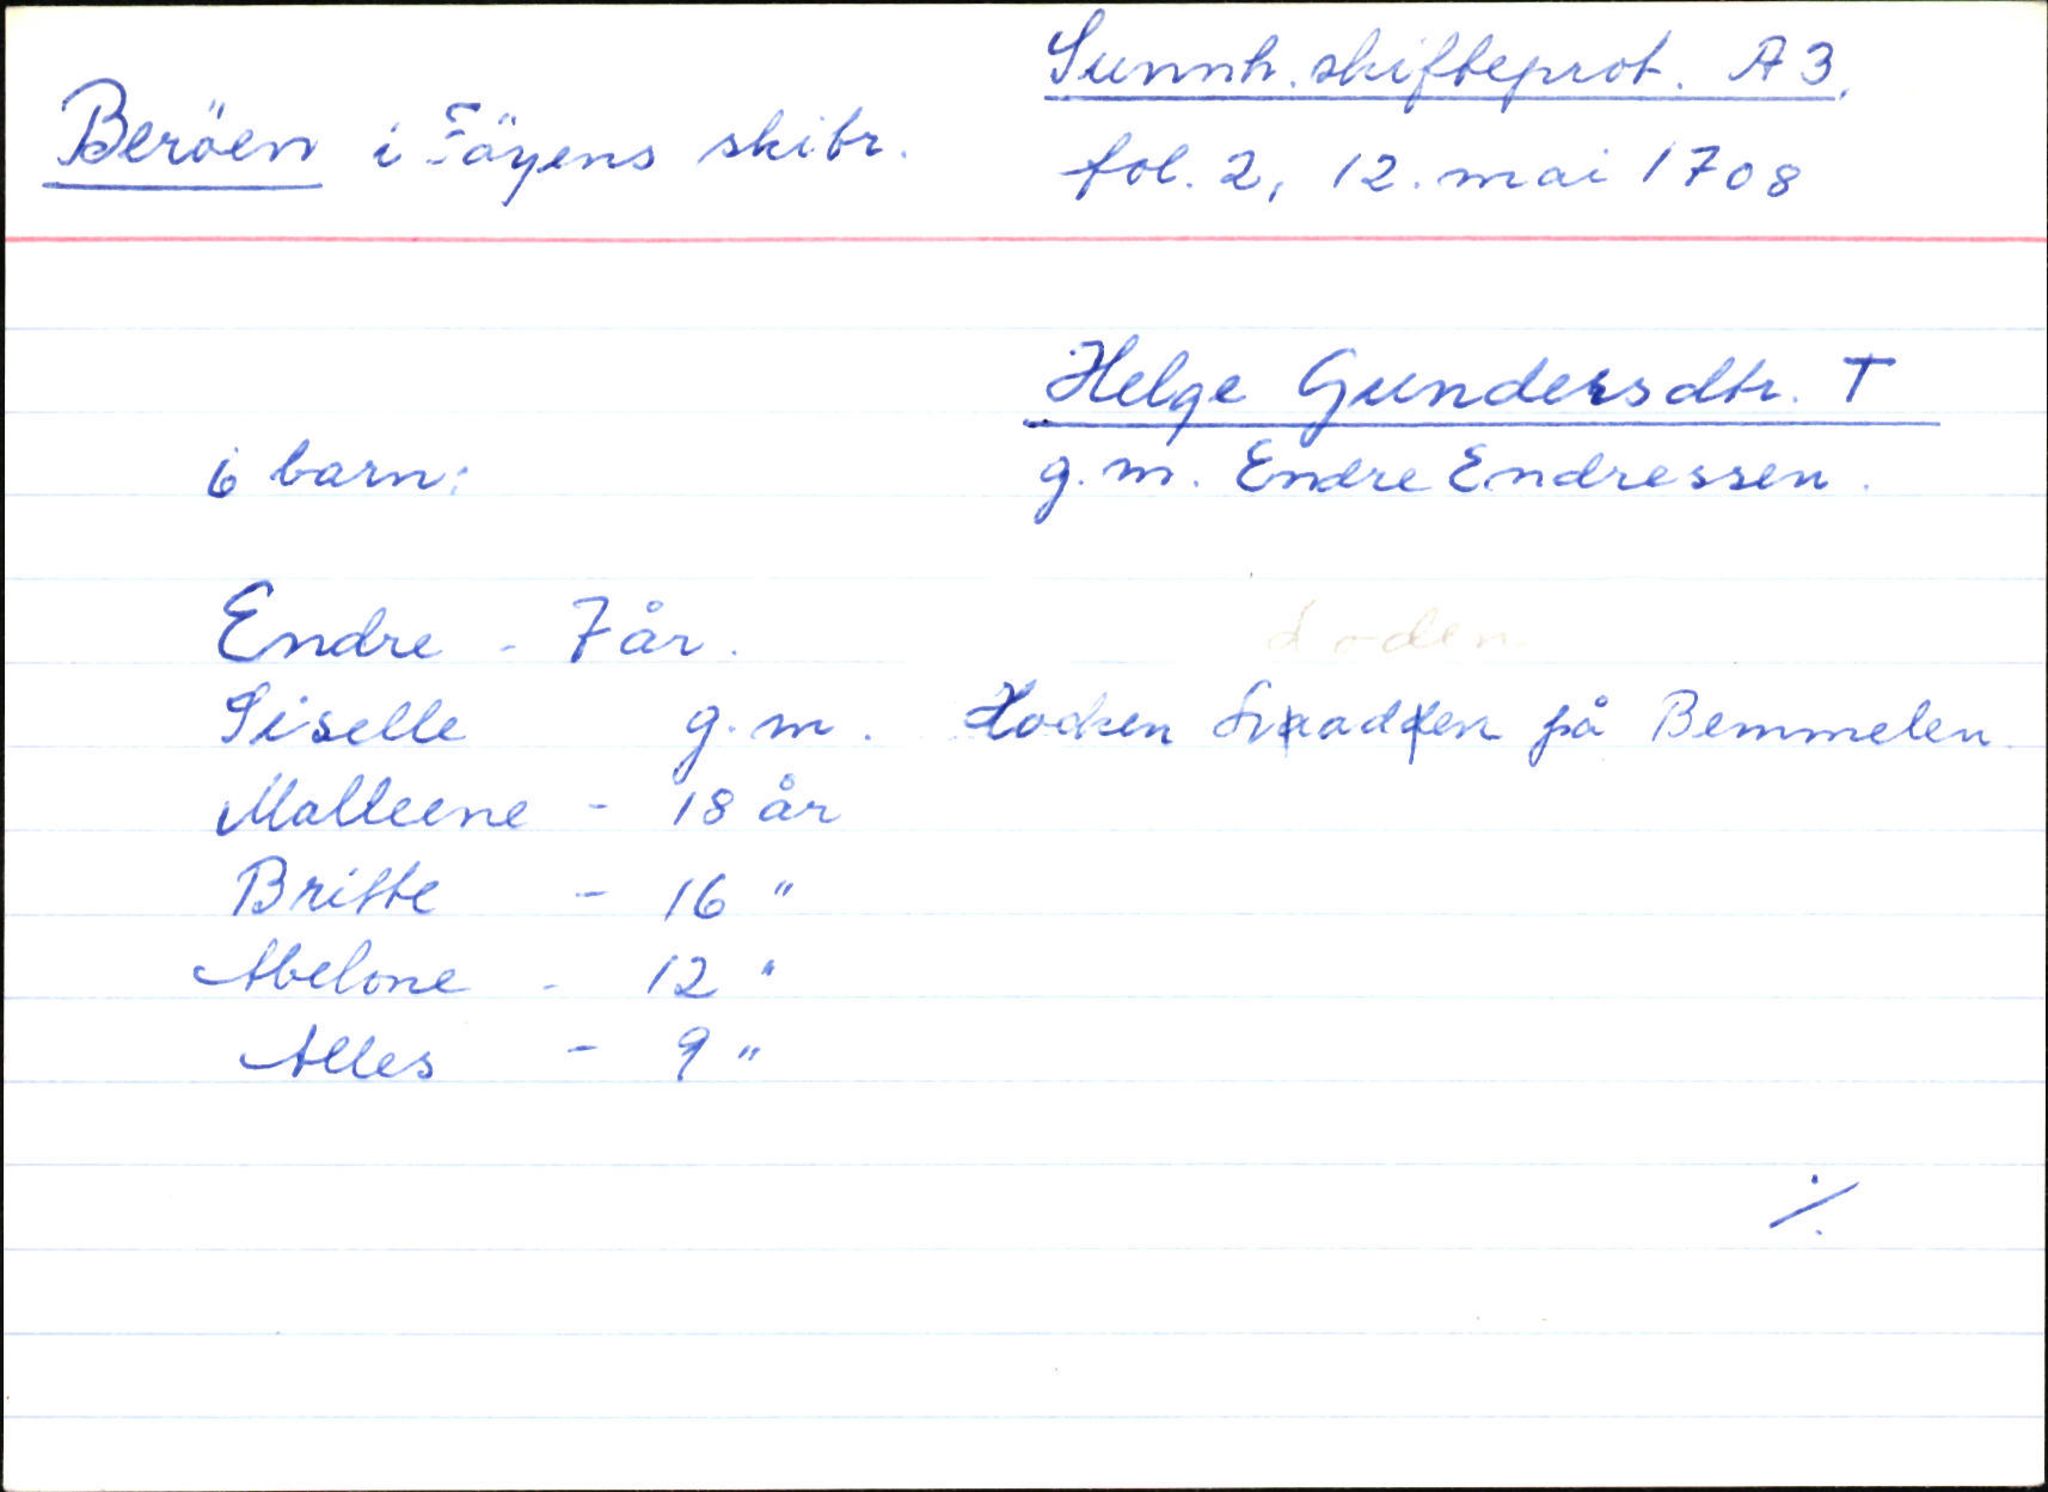 Sunnh. skifteprot. A 3,
Beröen i Föyens skibr.
fol. 2, 12. mai 1708
Helge Gundersdtr. †
6 barn:
g. m. Endre Endressen.
Endre - 7 år.
Loden
Siselle g. m. Hocken på Bemmelen.
Malleene - 18 år
Britte - 16 "
Abelone - 12 "
Alles - 9 "
./.